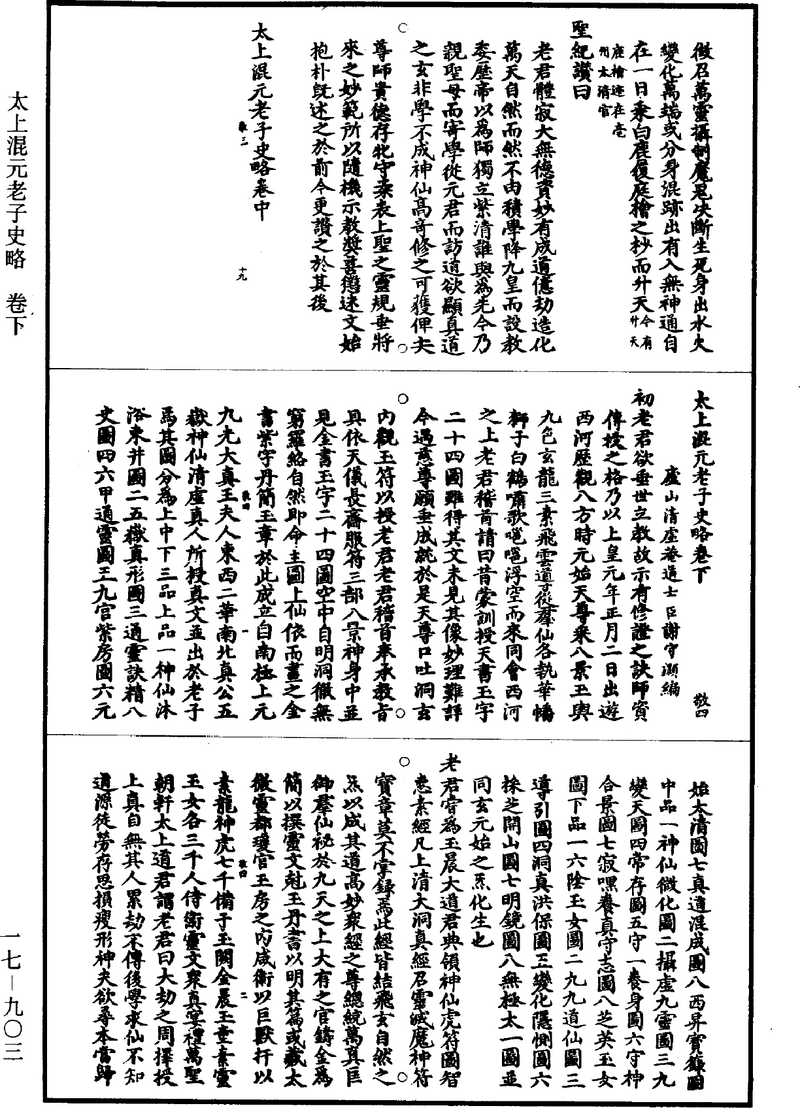 太上混元老子史略 卷下
徵召萬靈攝制魔鬼決斷生死身出水火
變化萬端或分身混跡出有入無神通自
在一日乘白鹿復庭檜之杪而升天今有升天
庭檜迹在亳州太清宮
聖紀讚曰
老君體寂大無德資妙有成道億劫造化
萬天自然而然不由積學降九皇而設教
委歷帝以為師獨立紫清誰與為先今乃
親聖母而寄學從元君而訪道欲顯真道
之玄非學不成神仙高奇修之可獲俾夫
尊師貴德存牝守柔表上聖之靈規垂將
來之妙範所以隨機示教獎善懲述文始
抱朴旣述之於前今更讚之於其後
太上混元老子史略卷中
敬三
十九
太上混元老子史略卷下
敬四
廬山清虛菴道士臣謝守灝編
初老君欲垂世立教故示有修證之訣師資
傳授之格乃以上皇元年正月二日出遊
西河歷觀八方時元始天尊乘八景玉輿
九色玄龍三素飛雲導從羣仙各執華幡
獅子白鶴嘯歌嗈嗈浮空而來同會西河
之上老君稽首請曰昔蒙訓授天書玉字
二十四圖雖得其文未見其像妙理難詳
今遇慈尊願垂成就於是天尊口吐洞玄
內觀玉符以授老君老君稽首奉承教旨
具依天儀長齋服符三部八景神身中並
見金書玉字二十四圖空中自明洞徹無
窮羅絡自然即命主圖上仙依而畫之金
書紫字丹簡玉章於此成立自南極上元
敬四
一
九光大真王夫人東西二華南北真公五
嶽神仙清虛真人所授真文並出於老子
焉其圖分為上中下三品上品一神仙沐
浴東井圖二五嶽真形圖三通靈訣精八
史圖四六甲通靈圖五九宮紫房圖六元
始太清圖七真道混成圖八西昇寶籙圖
中品一神仙微化圖二攝虛九靈圖三九
變天圖四常存圖五守一養身圖六守神
合景圖七寂嘿養真守志圖八芝英玉女
圖下品一六陰玉女圖二九九道仙圖三
導引圖四洞真洪保圖五變化隱惻圖六
採芝開山圖七明鏡圖八無極太一圖並
同玄元始之炁化生也
老君嘗為玉晨大道君典領神仙虎符圖智
慧素經凡上清大洞真經召靈威魔神符
寶章莫不掌錄焉此經皆結飛玄自然之
炁以成其道高妙衆經之尊總統萬真巨
御羣仙祕於九天之上大有之宮鑄金為
簡以撰靈文剋玉丹書以明其篇或藏太
微靈都瓊宮玉房之內咸衛以巨獸扞以
敬四
二
素龍神虎七千備于玉闕金晨玉童素靈
玉女各三千人侍衛靈文衆真宴禮萬聖
朝軒太上道君謂老君曰大劫之周擇授
上真自無其人累劫不傳後學求仙不知
道源徒勞存思損瘦形神夫欲尋本當歸
一七—九〇三